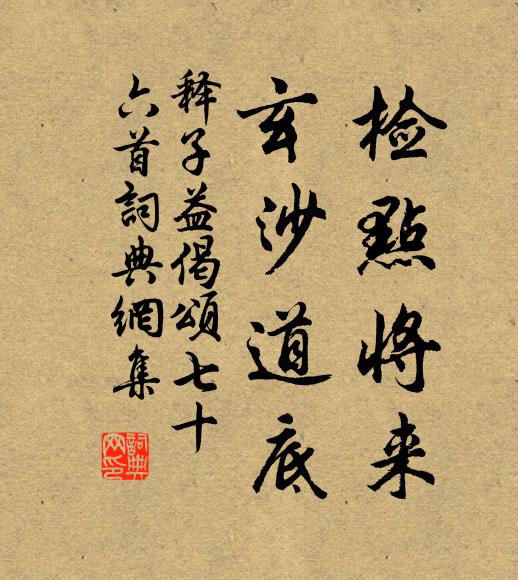 检點将来
玄沙道底
释子益偈頌七十
六首詞典網集
詞典
网印